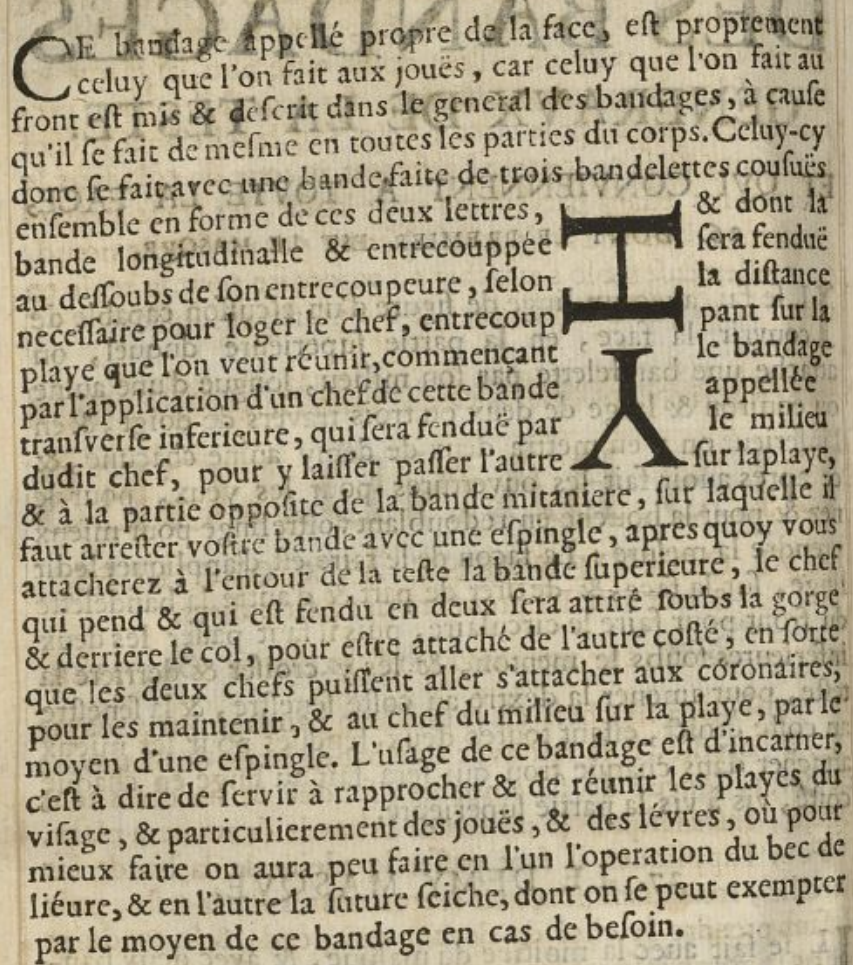 CE bandage appellé propre de la face, eſt proprement
celuy que l'on fait aux jouës, car celuy que l'on fait au
front eſt mis & deſcrit dans le general des bandages, à cauſe
qu'il ſe fait de meſme en toutes les parties du corps. Celuy-cy
donc ſe fait avec une bande faite de trois bandelettes couſuës
enſemble en forme de ces deux lettres, & dont la
bande longitudinalle & entrecouppée ſera fenduë
au deſſoubs de ſon entrecoupeure, ſelon la diſtance
neceſſaire pour loger le chef, entrecoup H pant ſur la
playe que l'on veut réunir, commençant le bandage
par l'application d'un chef de cette bande appellée
tranſverſe inferieure, qui ſera fenduë par le milieu
dudit chef, pour y laiſſer paſſer l'autre Y ſur la playe,
& à la partie oppoſite de la bande mitaniere, ſur laquelle il
faut arreſter voſtre bande avec une eſpingle, apres quoy vous
attacherez à l'entour de la teſte la bande ſuperieure, le chef
qui pend & qui eſt fendu en deux ſera attiré ſoubs la gorge
& derriere le col, pour eſtre attaché de l'autre coſté, en ſorte
que les deux chefs puiſſent aller s'attacher aux coronaires,
pour les maintenir, & au chef du milieu ſur la playe, par le
moyen d'une eſpingle. L'uſage de ce bandage eſt d'incarner,
c'eſt à dire de ſervir à rapprocher & de réunir les playes du
viſage, & particulierement des jouës, & des lévres, où pour
mieux faire on aura peu faire en l'un l'operation du bec de
liéure, & en l'autre la ſuture ſeiche, dont on ſe peut exempter
par le moyen de ce bandage en cas de beſoin.